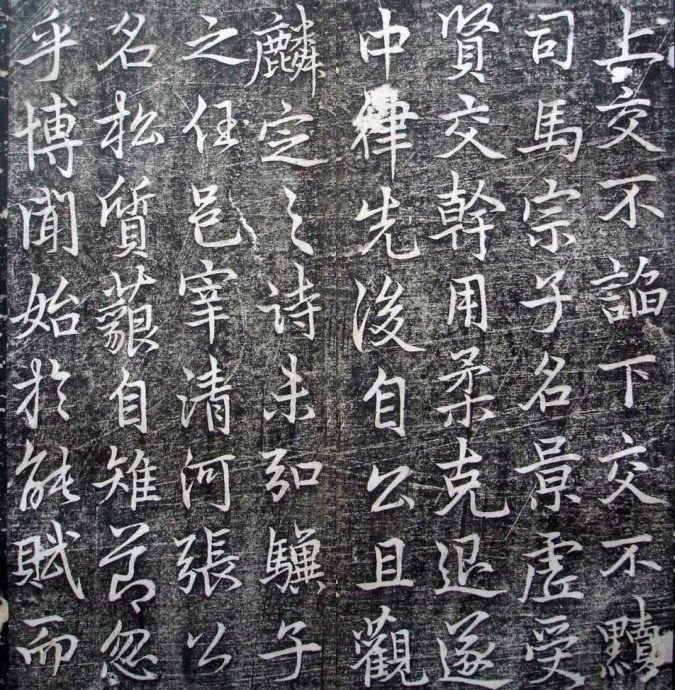 上交不諂下交不黷
司馬宗子名景虛受
賢交幹用柔克退遂
中律先後自公且觀
麟定之詩未弘驥子
之任邑宰清河張公
名松質藐自雉節忽
乎博聞始於能賦而